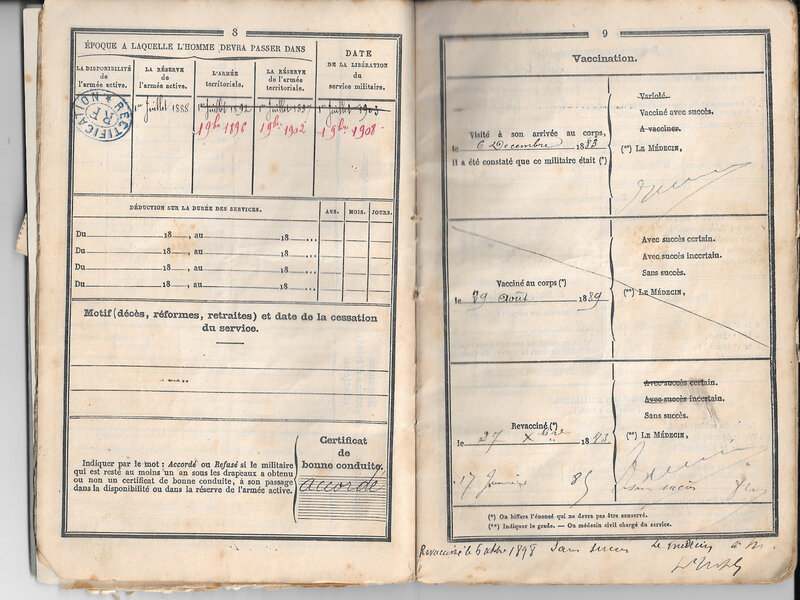 8
ÉPOQUE A LAQUELLE L'HOMME DEVRA PASSER DANS
DATE
DE LA LIBÉRATION
du
service militaire.
LA DISPONIBILITÉ
de
l'armée active.
LA RÉSERVE
de
l'armée active.
L'ARMÉE
territoriale.
LA RÉSERVE
de l'armée
territoriale.
RECTIFICATION
RF
1er Juillet 1888
1er Juillet 1892
1er Juillet
1er Juillet 1903
1 9bre 1896
1 9bre 1902
1 9bre 1908
DÉDUCTION SUR LA DURÉE DES SERVICES.
ANS.
MOIS.
JOURS.
Du 18 , au 18 ,...
Du 18 , au 18 ,...
Du 18 , au 18 ,...
Du 18 , au 18 ,...
Motif (décès, réformes, retraites) et date de la cessation
du service.
Indiquer par le mot : Accordé ou Refusé si le militaire
qui est resté au moins un an sous les drapeaux a obtenu
ou non un certificat de bonne conduite, à son passage
dans la disponibilité ou dans la réserve de l'armée active.
Certificat
de
bonne conduite.
accordé
9
Vaccination.
Visité à son arrivée au corps,
le 6 Decembre 1883
il a été constaté que ce militaire était (*)
Variolé.
Vacciné avec succès.
A vacciner.
(**) LE MÉDECIN,
Vacciné au corps (*)
le 29 Août 1889
Avec succès certain.
Avec succès incertain.
Sans succès.
(**) LE MÉDECIN,
Revacciné (*)
le 27 Xbre 1883
17 Janvier 85
Avec succès certain.
Avec succès incertain.
Sans succès.
(**) LE MÉDECIN,
sans succès
(*) On biffera l'énoncé qui ne devra pas être conservé.
(**) Indiquer le grade. — Ou médecin civil chargé du service.
Revacciné le 6 1898 Sans succès Le médecin